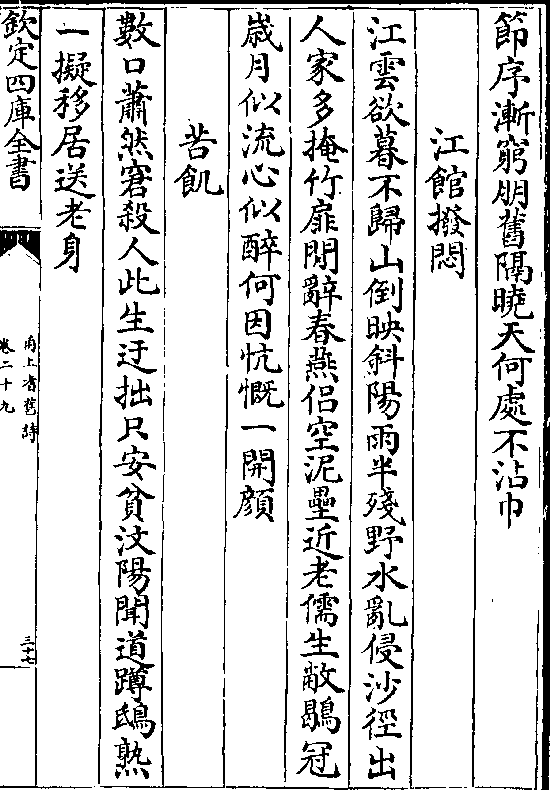 節序漸窮朋舊隔曉天何處不沾巾
江館撥悶
江雲欲暮不歸山倒映斜陽雨半殘野水亂侵沙徑出
人家多掩竹扉閒辭春燕侣空泥壘近老儒生敝鶡冠
歳月似流心似醉何因忼慨一開顔
苦飢
數口蕭然窘殺人此生迂拙只安貧汶陽聞道蹲鴟熟
一擬移居送老身
欽定四庫全書
甬上耆舊詩
卷二十九
三十七